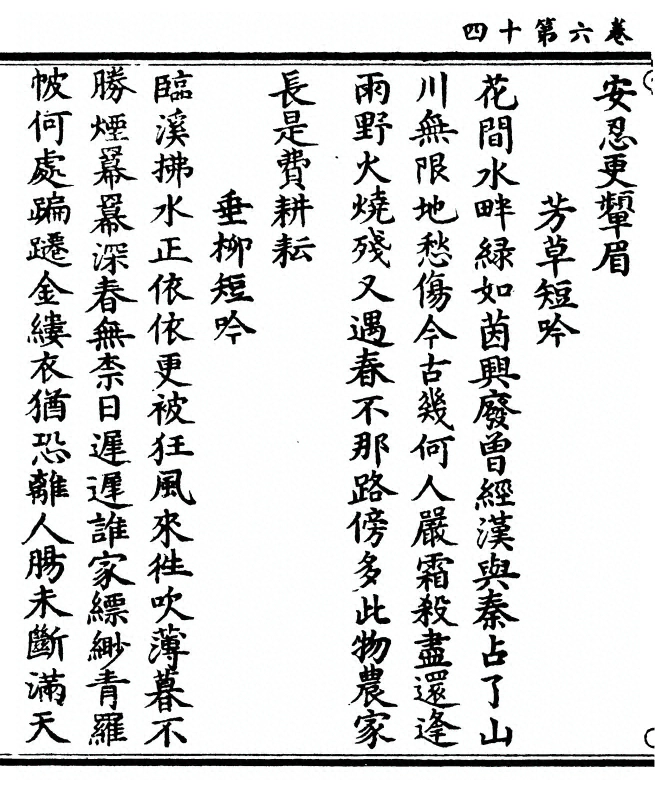 卷六第十四
安忍更顰眉
芳草短吟
花間水畔綠如茵興廢曾經漢與秦占了山
川無限地愁傷今古幾何人嚴霜殺盡還逢
雨野火燒殘又遇春不那路傍多此物農家
長是費耕耘
垂柳短吟
臨溪拂水正依依更被狂風來徃吹薄暮不
勝煙羃羃深春無柰日遲遲誰家縹緲青羅
帔何處蹁躚金縷衣猶恐離人腸未斷滿天